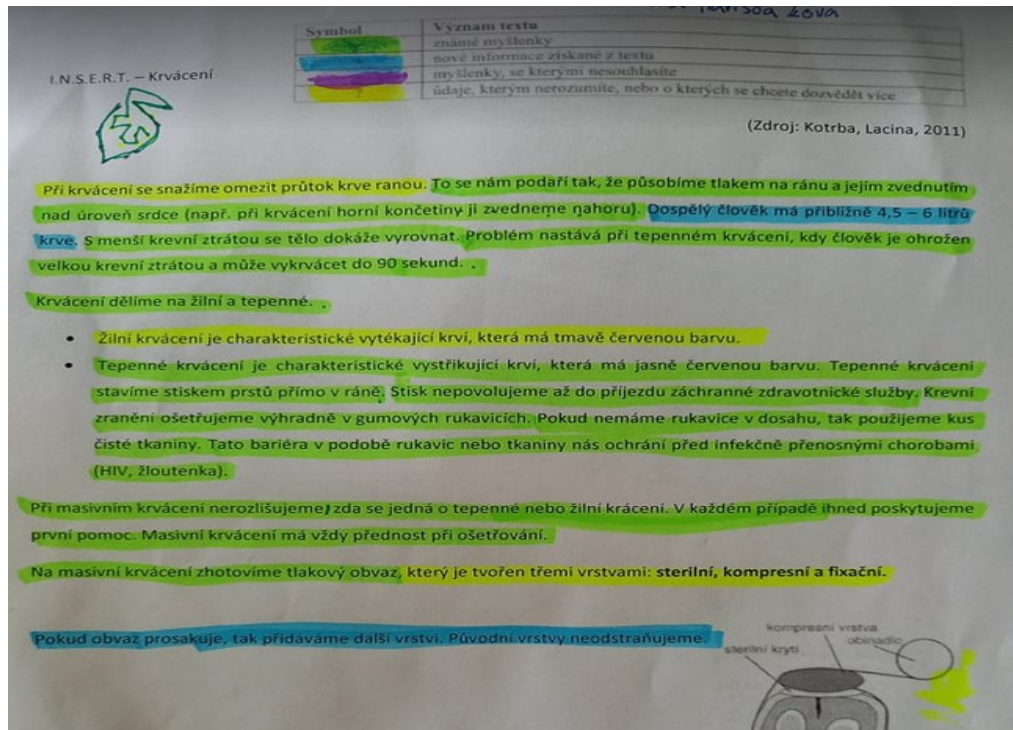 Symbol Význam textu
známé myšlenky
nové informace získané z textu
myšlenky, se kterými nesouhlasíte
údaje, kterým nerozumíte, nebo o kterých se chcete dozvědět více
I.N.S.E.R.T. – Krvácení
(Zdroj: Kotrba, Lacina, 2011)
Při krvácení se snažíme omezit průtok krve ranou. To se nám podaří tak, že působíme tlakem na ránu a jejím zvednutím
nad úroveň srdce (např. při krvácení horní končetiny ji zvedneme nahoru). Dospělý člověk má přibližně 4,5 – 6 litrů
krve. S menší krevní ztrátou se tělo dokáže vyrovnat. Problém nastává při tepenném krvácení, kdy člověk je ohrožen
velkou krevní ztrátou a může vykrvácet do 90 sekund. .
Krvácení dělíme na žilní a tepenné. .
• Žilní krvácení je charakteristické vytékající krví, která má tmavě červenou barvu.
• Tepenné krvácení je charakteristické vystřikující krví, která má jasně červenou barvu. Tepenné krvácení
stavíme stiskem prstů přímo v ráně. Stisk nepovolujeme až do příjezdu záchranné zdravotnické služby. Krevní
zranění ošetřujeme výhradně v gumových rukavicích. Pokud nemáme rukavice v dosahu, tak použijeme kus
čisté tkaniny. Tato bariéra v podobě rukavic nebo tkaniny nás ochrání před infekčně přenosnými chorobami
(HIV, žloutenka).
Při masivním krvácení nerozlišujeme, zda se jedná o tepenné nebo žilní krácení. V každém případě ihned poskytujeme
první pomoc. Masivní krvácení má vždy přednost při ošetřování.
Na masivní krvácení zhotovíme tlakový obvaz, který je tvořen třemi vrstvami: sterilní, kompresní a fixační.
Pokud obvaz prosakuje, tak přidáváme další vrstvi. Původní vrstvy neodstraňujeme.
kompresní vrstva
obinadlo
sterilní krytí